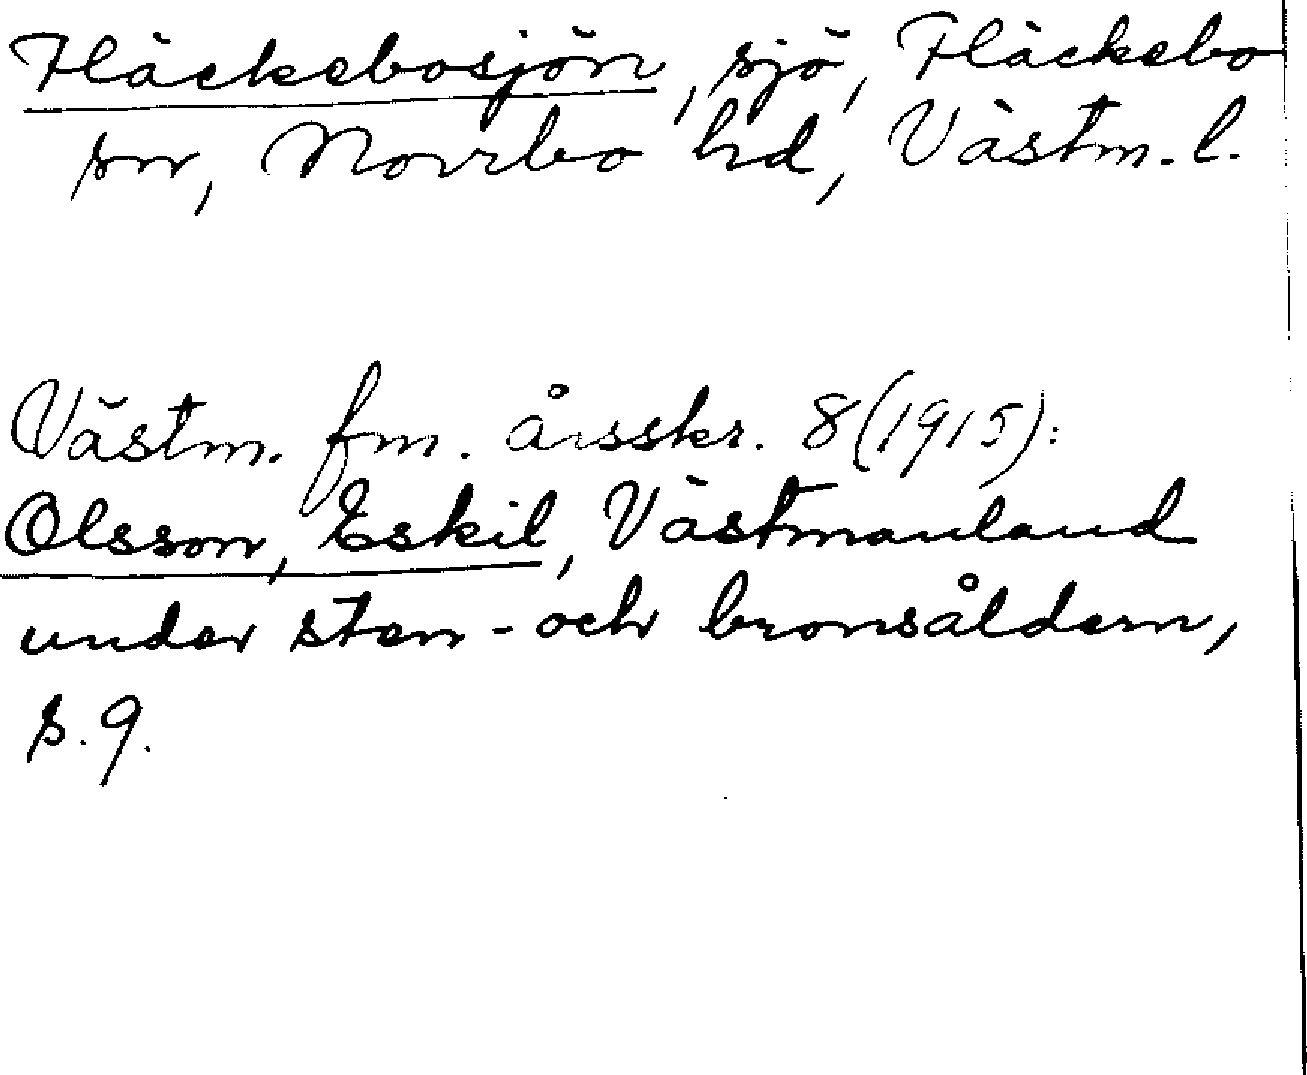 Fläckebosjön, sjö, Fläckebo
sn, Norrbo hd, Västm. l.
Västm. fm. årsskr. 8 (1915):
Olsson, Eskil, Västmanland
under sten- och bronsåldern,
s. 9.